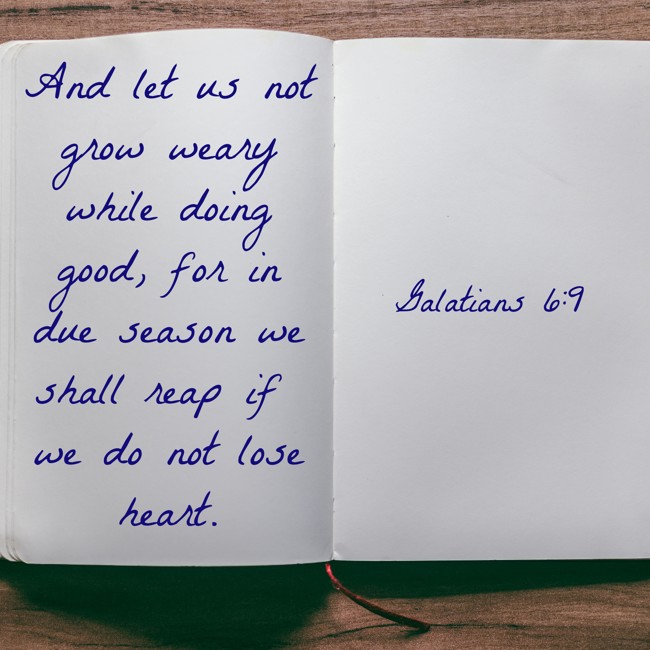 And let us not
grow weary
while doing
good, for in
due season we
shall reap if
we do not lose
heart.
Galatians 6:9